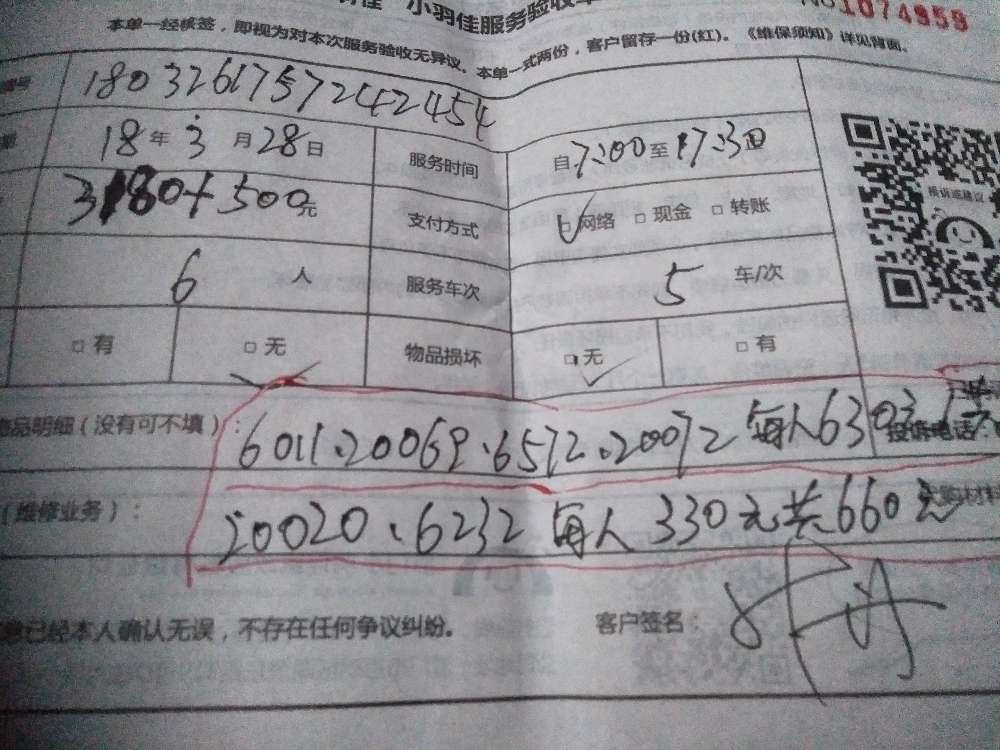 小羽佳服务验收单
1074959
本单一经核签，即视为对本次服务验收无异议。本单一式两份，客户留存一份(红)。《维保须知》详见背面。
编号 1803261757242454
18年3月28日 服务时间 自7:00至17:30
3180+500元 支付方式 网络 □现金 □转账
投诉或建议
6人 服务车次 5车/次
□有 □无 物品损坏 □无 □有
物品明细（没有可不填）： 6011、20069、6572、20072 每人630
投诉电话：
（维修业务）： 20020、6232 每人330元共660元
已经本人确认无误，不存在任何争议纠纷。 客户签名：